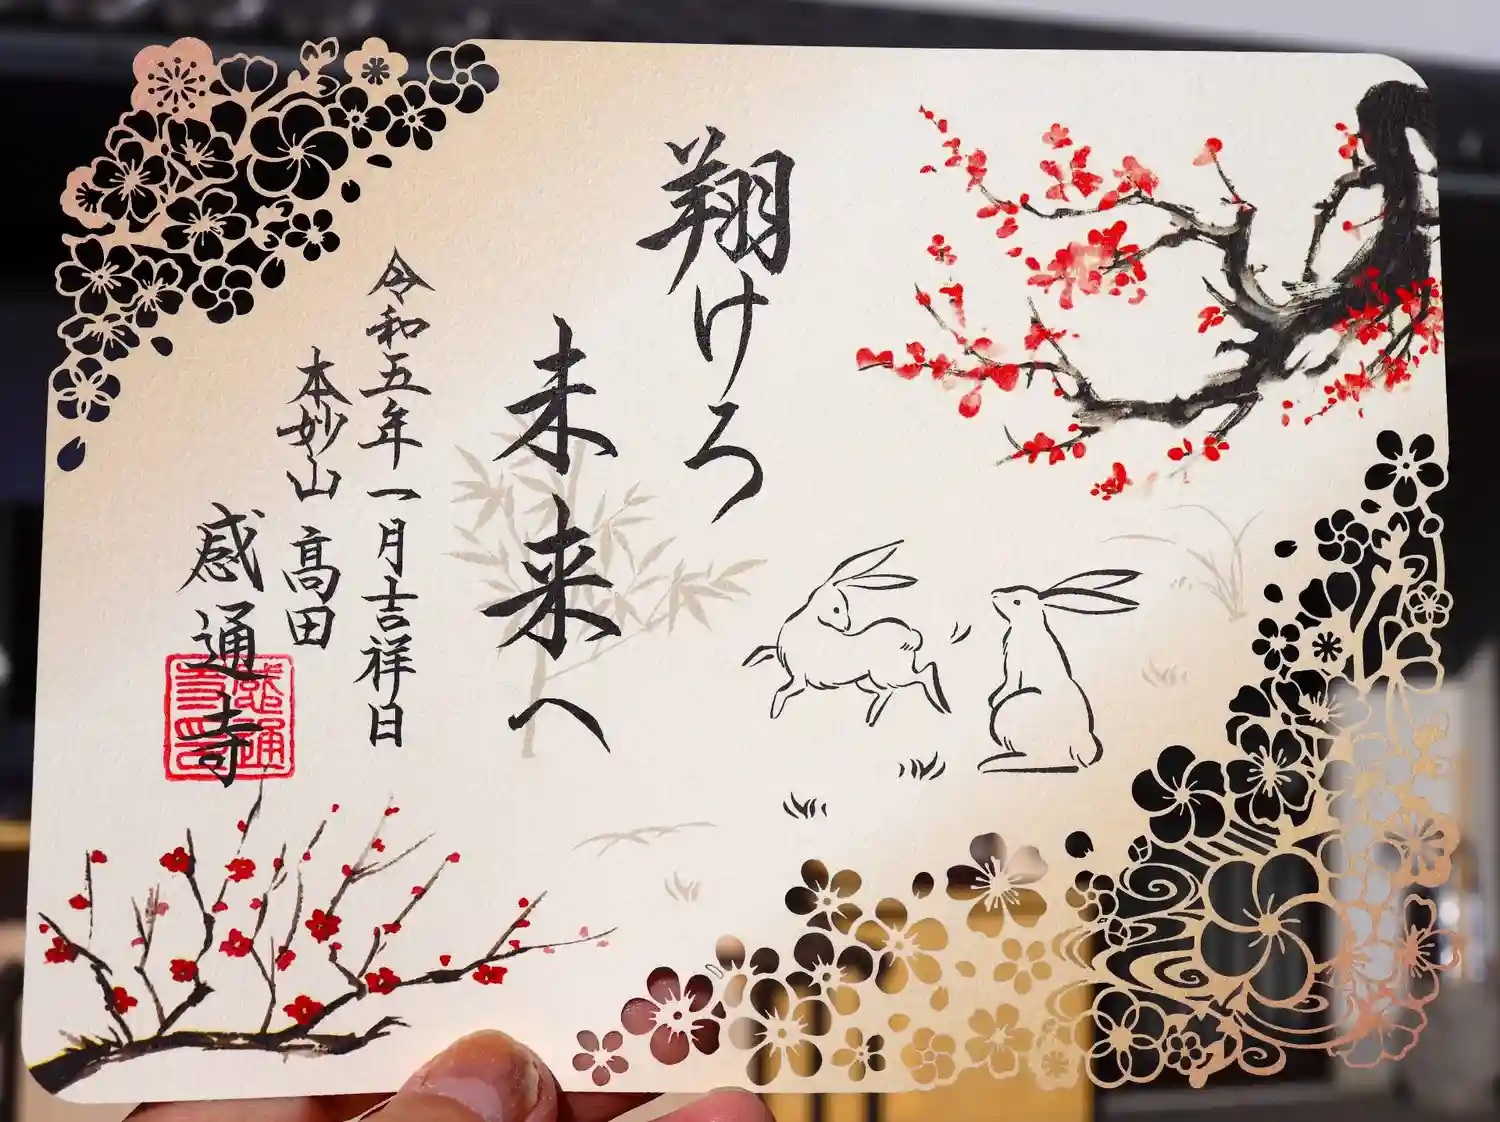 翔けろ
未来へ
令和五年一月吉祥日
本妙山 高田
感通寺